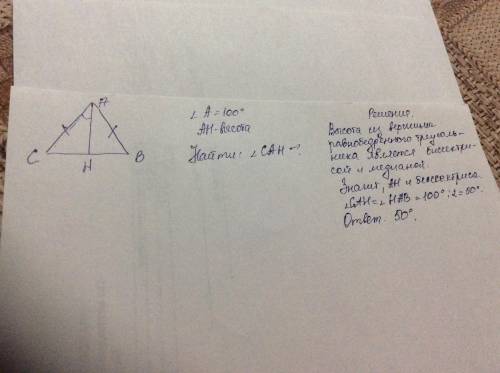 A
C
H
B
∠A = 100°
AH - высота
Найти: ∠CAH - ?
Решение.
Высота из вершины
равнобедренного треуголь-
ника является биссектри-
сой и медианой.
Значит, AH и биссектриса.
∠CAH = ∠HAB = 100° : 2 = 50°.
Ответ. 50°.